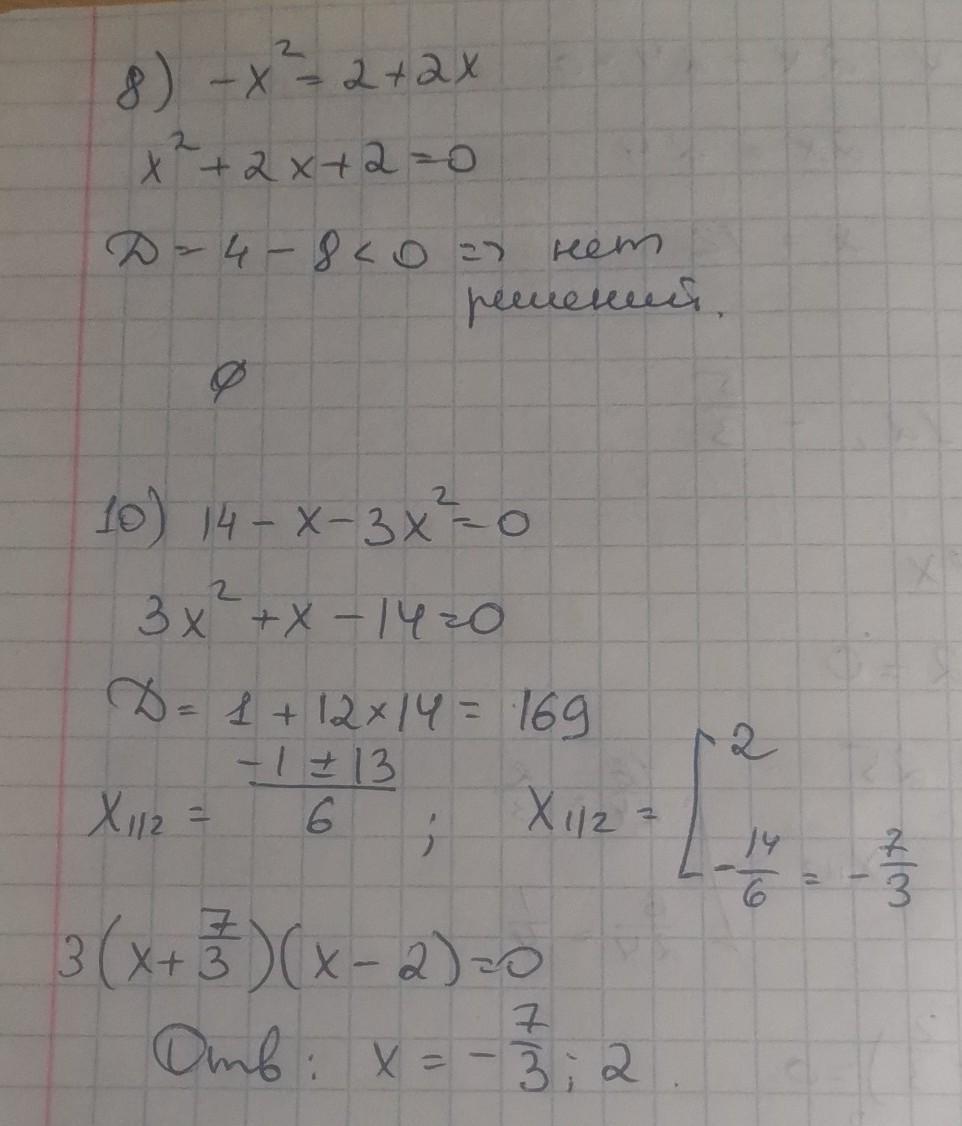 8) -x² = 2 + 2x
x² + 2x + 2 = 0
D = 4 - 8 < 0 => нет
решений.
∅
10) 14 - x - 3x² = 0
3x² + x - 14 = 0
D = 1 + 12 × 14 = 169
x₁,₂ = (-1 ± 13)/6 ; x₁,₂ = [ 2
-14/6 = -7/3
3(x + 7/3)(x - 2) = 0
Отв: x = -7/3; 2.